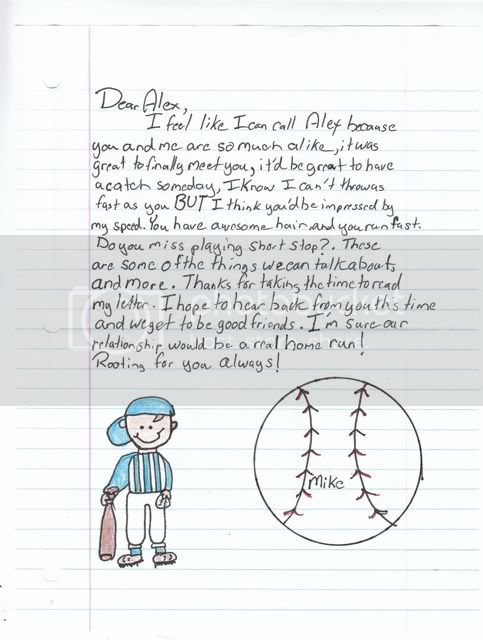 Dear Alex,
I feel like I can call Alex because
you and me are so much alike, it was
great to finally meet you, it'd be great to have
a catch someday, I know I can't throw as
fast as you BUT I think you'd be impressed by
my speed. You have awesome hair and you run fast.
Do you miss playing short stop?. These
are some of the things we can talk about,
and more. Thanks for taking the time to read
my letter. I hope to hear back from you this time
and we get to be good friends. I'm sure our
relationship would be a real home run!
Rooting for you always!
Mike